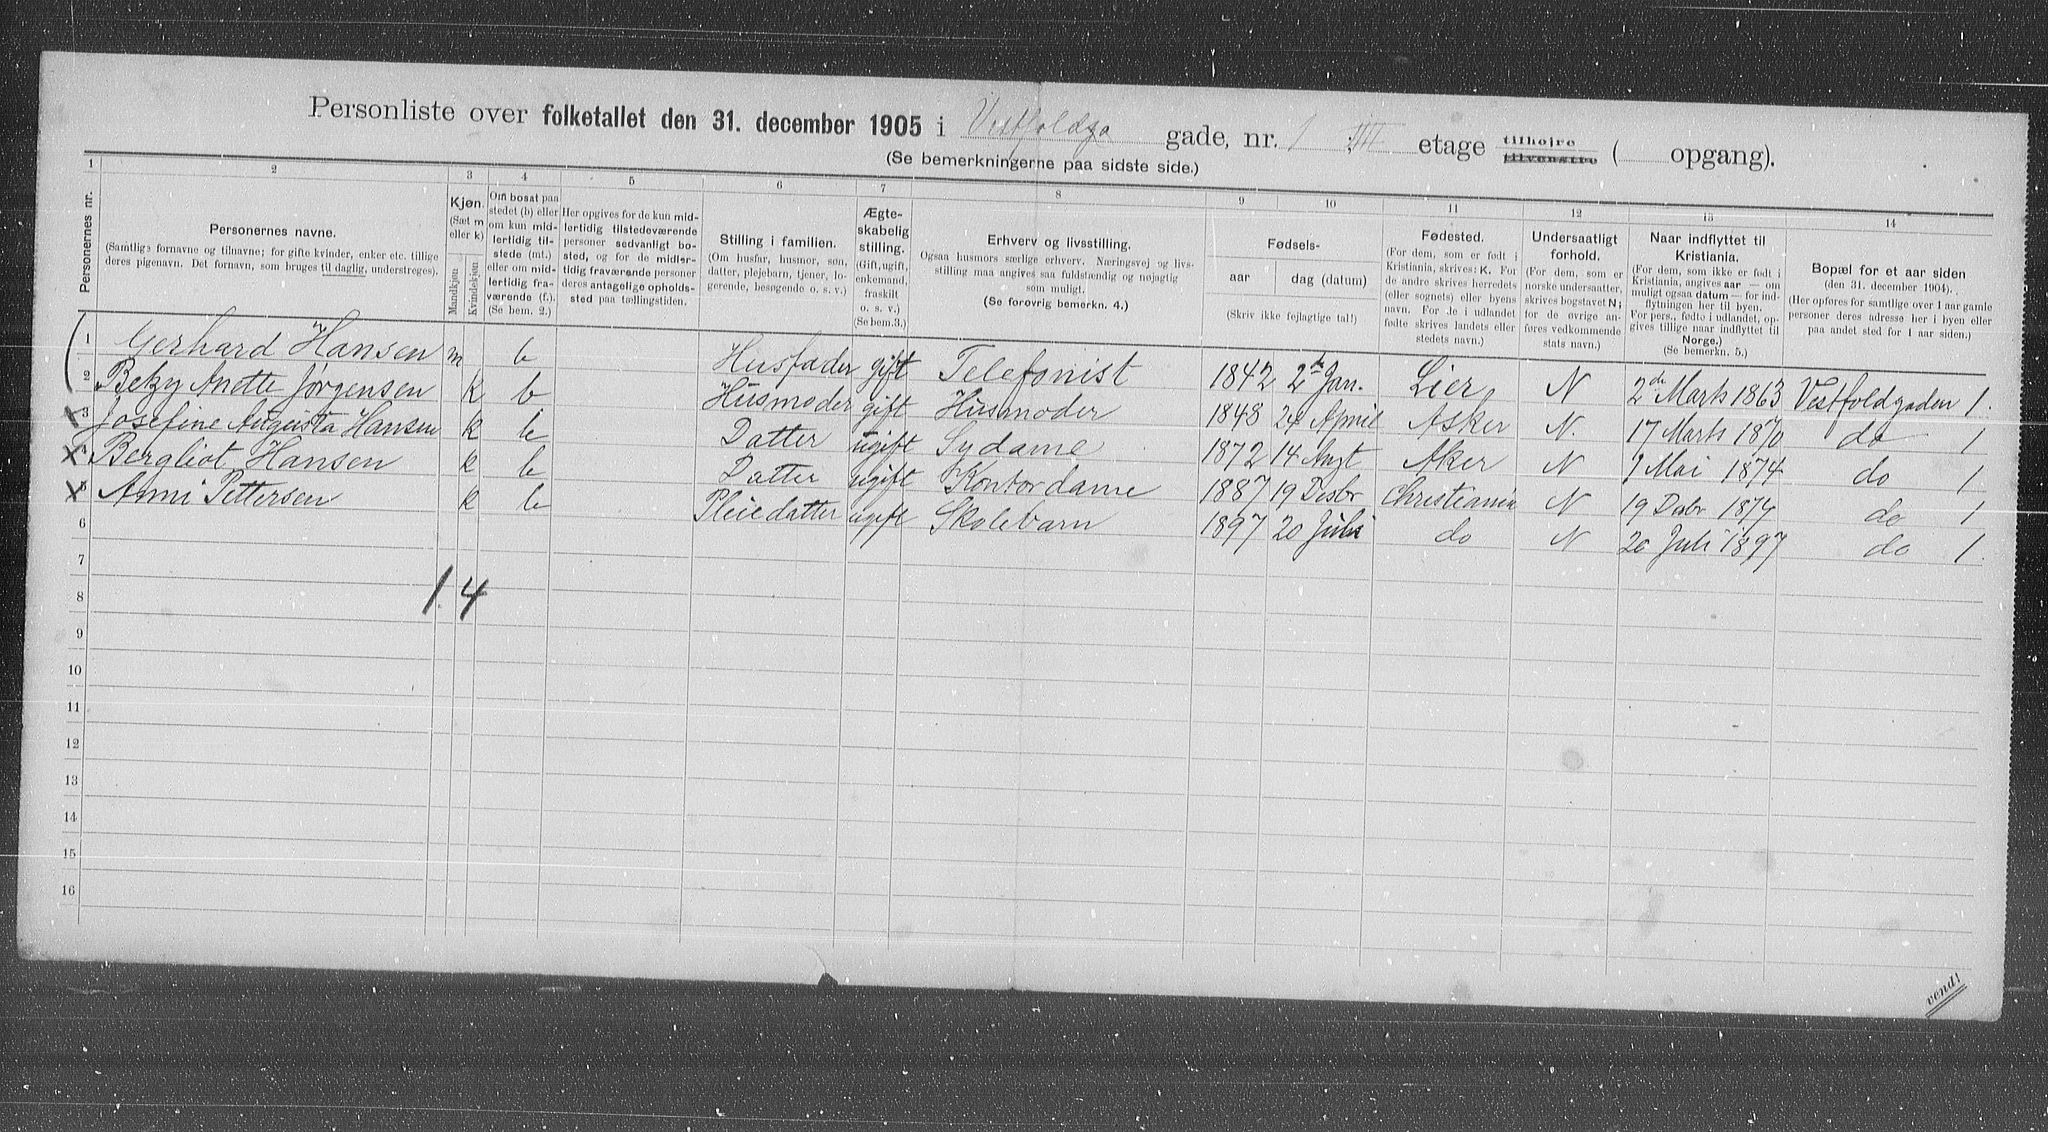 Personliste over folketallet den 31. december 1905 i Vestfoldga gade, nr. 1 III etage tilhøire tilvenstre ( opgang).
(Se bemerkningerne paa sidste side.)
1 2 3 4 5 6 7 8 9 10 11 12 13 14
Personernes nr.
Personernes navne.
(Samtlige fornavne og tilnavne; for gifte kvinder, enker etc. tillige
deres pigenavn. Det fornavn, som bruges til daglig, understreges).
Kjøn.
(Sæt m
eller k)
Mandkjøn
Kvindekjøn
Om bosat paa
stedet (b) eller
om kun mid-
lertidig til-
stede (mt.)
eller om mid-
lertidig fra-
værende (f.).
(Se bem. 2.)
Her opgives for de kun mid-
lertidig tilstedeværende
personer sedvanligt bo-
sted, og for de midler-
tidig fraværende personer
deres antagelige opholds-
sted paa tællingstiden.
Stilling i familien.
(Om husfar, husmor, søn,
datter, plejebarn, tjener, lo-
gerende, besøgende o. s. v.)
Ægte-
skabelig
stilling.
(Gift, ugift,
enkemand,
fraskilt
o. s. v.)
(Se bem.3.)
Erhverv og livsstilling.
Ogsaa husmors særlige erhverv. Næringsvej og livs-
stilling maa angives saa fuldstændig og nøjagtig
som muligt.
(Se forøvrig bemerkn. 4.)
Fødsels-
aar dag (datum)
(Skriv ikke fejlagtige tal!)
Fødested.
(For dem, som er født i
Kristiania, skrives: K. For
de andre skrives herredets
(eller sognets) eller byens
navn. For de i udlandet
fødte skrives landets eller
stedets navn.)
Undersaatligt
forhold.
(For dem, som er
norske undersaatter,
skrives bogstavet N;
for de øvrige an-
føres vedkommende
stats navn.)
Naar indflyttet til
Kristiania.
(For dem, som ikke er født i
Kristiania, angives aar — om
muligt ogsaa datum — for ind-
flytningen her til byen.
For pers., fødte i udlandet, op-
gives tillige naar indflyttet til
Norge.)
(Se bemerkn. 5.)
Bopæl for et aar siden
(den 31. december 1904).
(Her opføres for samtlige over 1 aar gamle
personer deres adresse her i byen eller
paa andet sted for 1 aar siden.)
1 Gerhard Hansen m b Husfader gift Telefonist 1842 2de Jan. Lier N 2de Marts 1863 Vestfoldgaden 1.
2 Betzy Anette Jørgensen k b Husmoder gift Husmoder 1848 24 April Asker N. 17 Marts 1870 do 1
x 3 Josefine Augusta Hansen k b Datter ugift Sydame 1872 14 Augt Aker N 1 Mai 1874 do 1
x Bergliot Hansen k b Datter ugift Kontordame 1887 19 Desbr Christiania N 19 Desbr 1874 do 1
x 5 Anni Pettersen k b Pleiedatter ugift Skolebarn 1897 20 Juli do N 20 Juli 1897 do 1.
6
7
8 1. 4
9
10
11
12
13
14
15
16
vend!